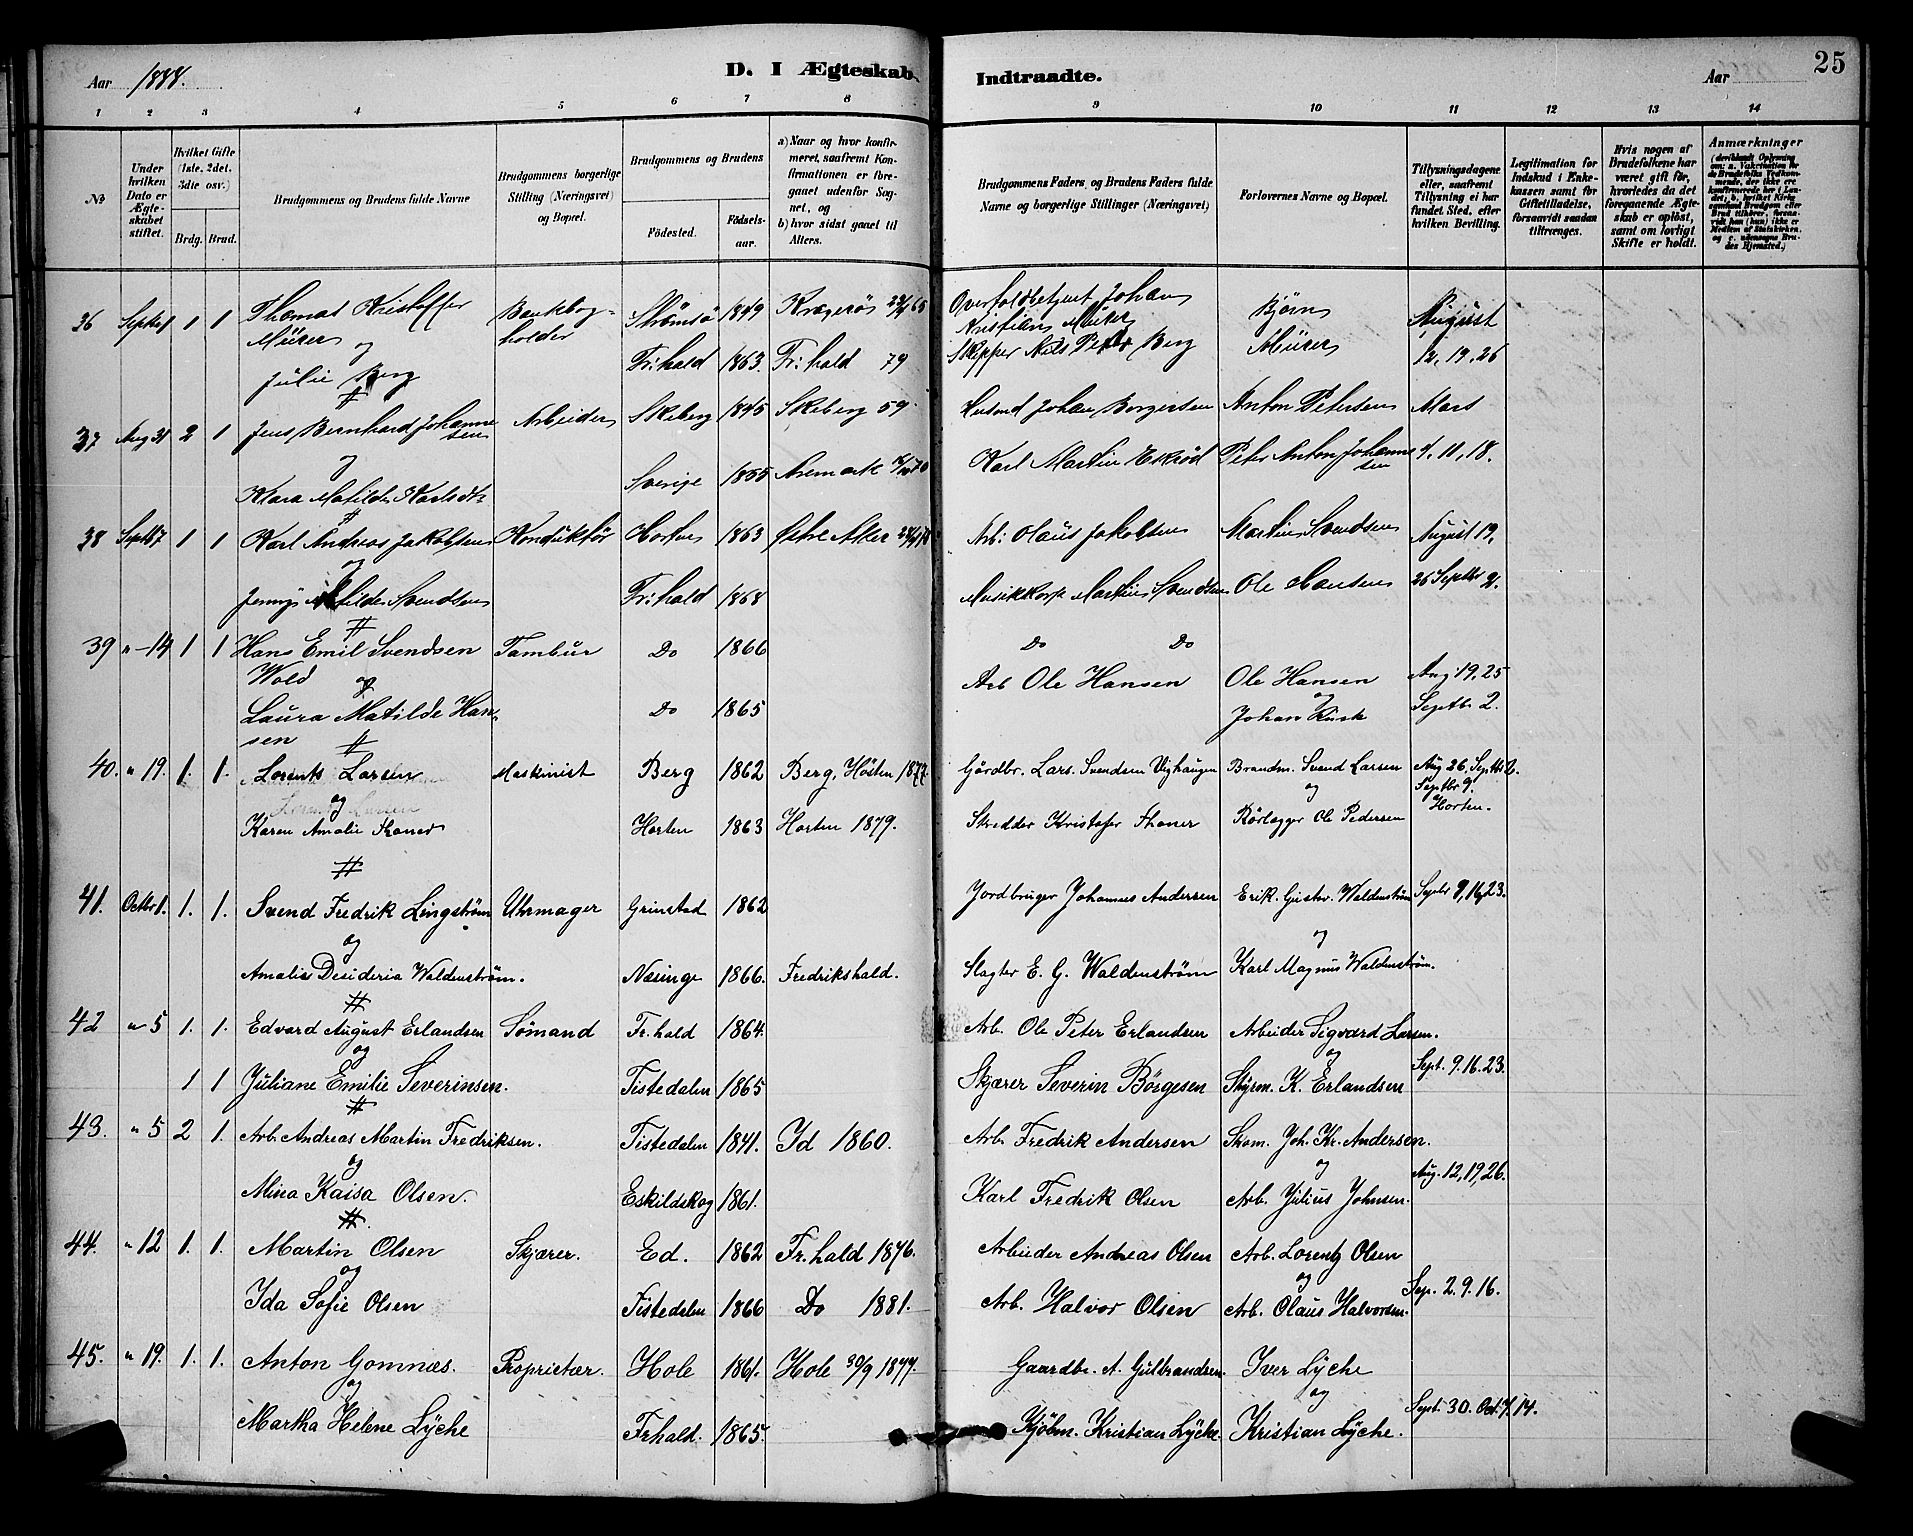 Aar 1888.
D. I Ægteskab
Indtraadte.
Aar
25
1 2 3 4 5 6 7 8 9 10 11 12 13 14
No
Under hvilken Dato er Ægteskabet stiftet.
Hvilket Gifte (1ste, 2det, 3die osv.)
Brdg. Brud.
Brudgommens og Brudens fulde Navne
Brudgommens borgerlige Stilling (Næringsvei) og Bopæl.
Brudgommens og Brudens
Fødested. Fødselsaar.
a) Naar og hvor konfirmeret, saafremt Konfirmationen er foregaaet udenfor Sognet, og
b) hvor sidst gaaet til Alters.
Brudgommens Faders, og Brudens Faders fulde Navne og borgerlige Stillinger (Næringsvei)
Forlovernes Navne og Bopæl.
Tillysningsdagene eller, saafremt Tillysning ei har fundet Sted, efter hvilken Bevilling.
Legitimation for Indskud i Enkekassen samt for Giftetilladelse, forsaavidt saadan tiltrænges.
Hvis nogen af Brudefolkene har været gift før, hvorledes da det foregaaende Ægteskab er opløst, samt om lovligt Skifte er holdt.
Anmærkninger
36 Septbr 1 1 1 Thomas Kristoffer Bankbog- Strømsø 1849 Kragerø 65 Overtoldbetjent Johan Bjørn August
Mürer og holder Kristian Mürer Mürer 12, 19, 26
Julie Berg Fr:hald 1863. Fr:hald 79 Skipper Nils Peter Berg
37 Aug 31 2 1 Jens Bernhard Johannesen Arbeider Skeberg 1845 Skeberg 59 Husmd Johan Borgersen Anton Petersen Mars
og Karl Martin Ekrød Peter Anton Johannesen 4, 11, 18.
Klara Matilde Karlsdtr Sverige 1855 Aremark 70
38 Septb 7 1 1 Karl Andreas Jakobsen Konduktør Horten 1863 Østre Aker Arb: Olaus Jakobsen Martin Svendsen August 19,
og
Jenny Matilde Svendsen Fr:hald 1868 Musikkorp Martin Svendsen Ole Hansen 26 Septbr 2.
39 " - 14 1 1 Hans Emil Svendsen Tambur Do 1866 Do Do
Wold og Arb Ole Hansen Ole Hansen Aug 19, 25
Laura Matilde Han- Do 1865 og Septb. 2.
sen Johan Kusk
40. " 19. 1. 1. Lorents Larsen Maskinist Berg 1862 Berg, Høsten 1877. Gårdbr. Lars Svendsen Vighaugen Brandm. Svend Larsen Aug 26, Septbr 2.
og og Septbr 9.
Karen Amalie Thoner Horten 1863 Horten 1879. Skrædder Kristofer Thoner Rørlægger Ole Pedersen Horten.
41. Octbr 1. 1. 1. Svend Fredrik Lingstrøm Uhrmager Grinstad 1862 Jordbruger Johannes Andersen Erik Gustav Waldenstrøm Septbr 9, 16, 23.
og og
Amalia Desideria Waldenstrøm. Næsinge 1866. Fredrikshald. Slagter E. G. Waldenstrøm Karl Magnus Waldenstrøm.
42 " 5 1. 1. Edvard August Erlandsen Sømand Fr. hald 1864. Arb. Ole Peter Erlandsen Arbeider Sigvard Larsen.
og og Sept. 9. 16. 23.
1 1 Juliane Emilie Severinsen. Tistedalen 1865 Skjærer Severin Børgesen Styrm. K. Erlandsen
43. " 5 2 1. Arb. Andreas Martin Fredriksen. Tistedalen 1841. Id 1860. Arb. Fredrik Andersen Skom. Joh. Kr. Andersen.
og og Aug. 12, 19, 26.
Mina Kaisa Olsen. Eskildskog 1861. Karl Fredrik Olsen Arb. Julius Johnsen.
44. " 12 1. 1. Martin Olsen Skjærer. Ed. 1862 Fr. hald 1876. Arbeider Andreas Olsen Arb. Lorentz Olsen
og og Sep. 2. 9. 16.
Ida Sofie Olsen Tistedalen 1866 Do 1881. Arb. Halvor Olsen Arb. Olaus Halvorsen.
45. " 19. 1. 1. Anton Gomnæs. Proprietær. Hole 1861. Hole 30/9 1877. Gaardbr. A. Gulbrandsen. Iver Lÿche
og og Sept. 30. Oct. 7. 14.
Martha Helene Lÿche Frhald. 1865. Kjøbm. Kristian Lÿche. Kristian Lÿche.